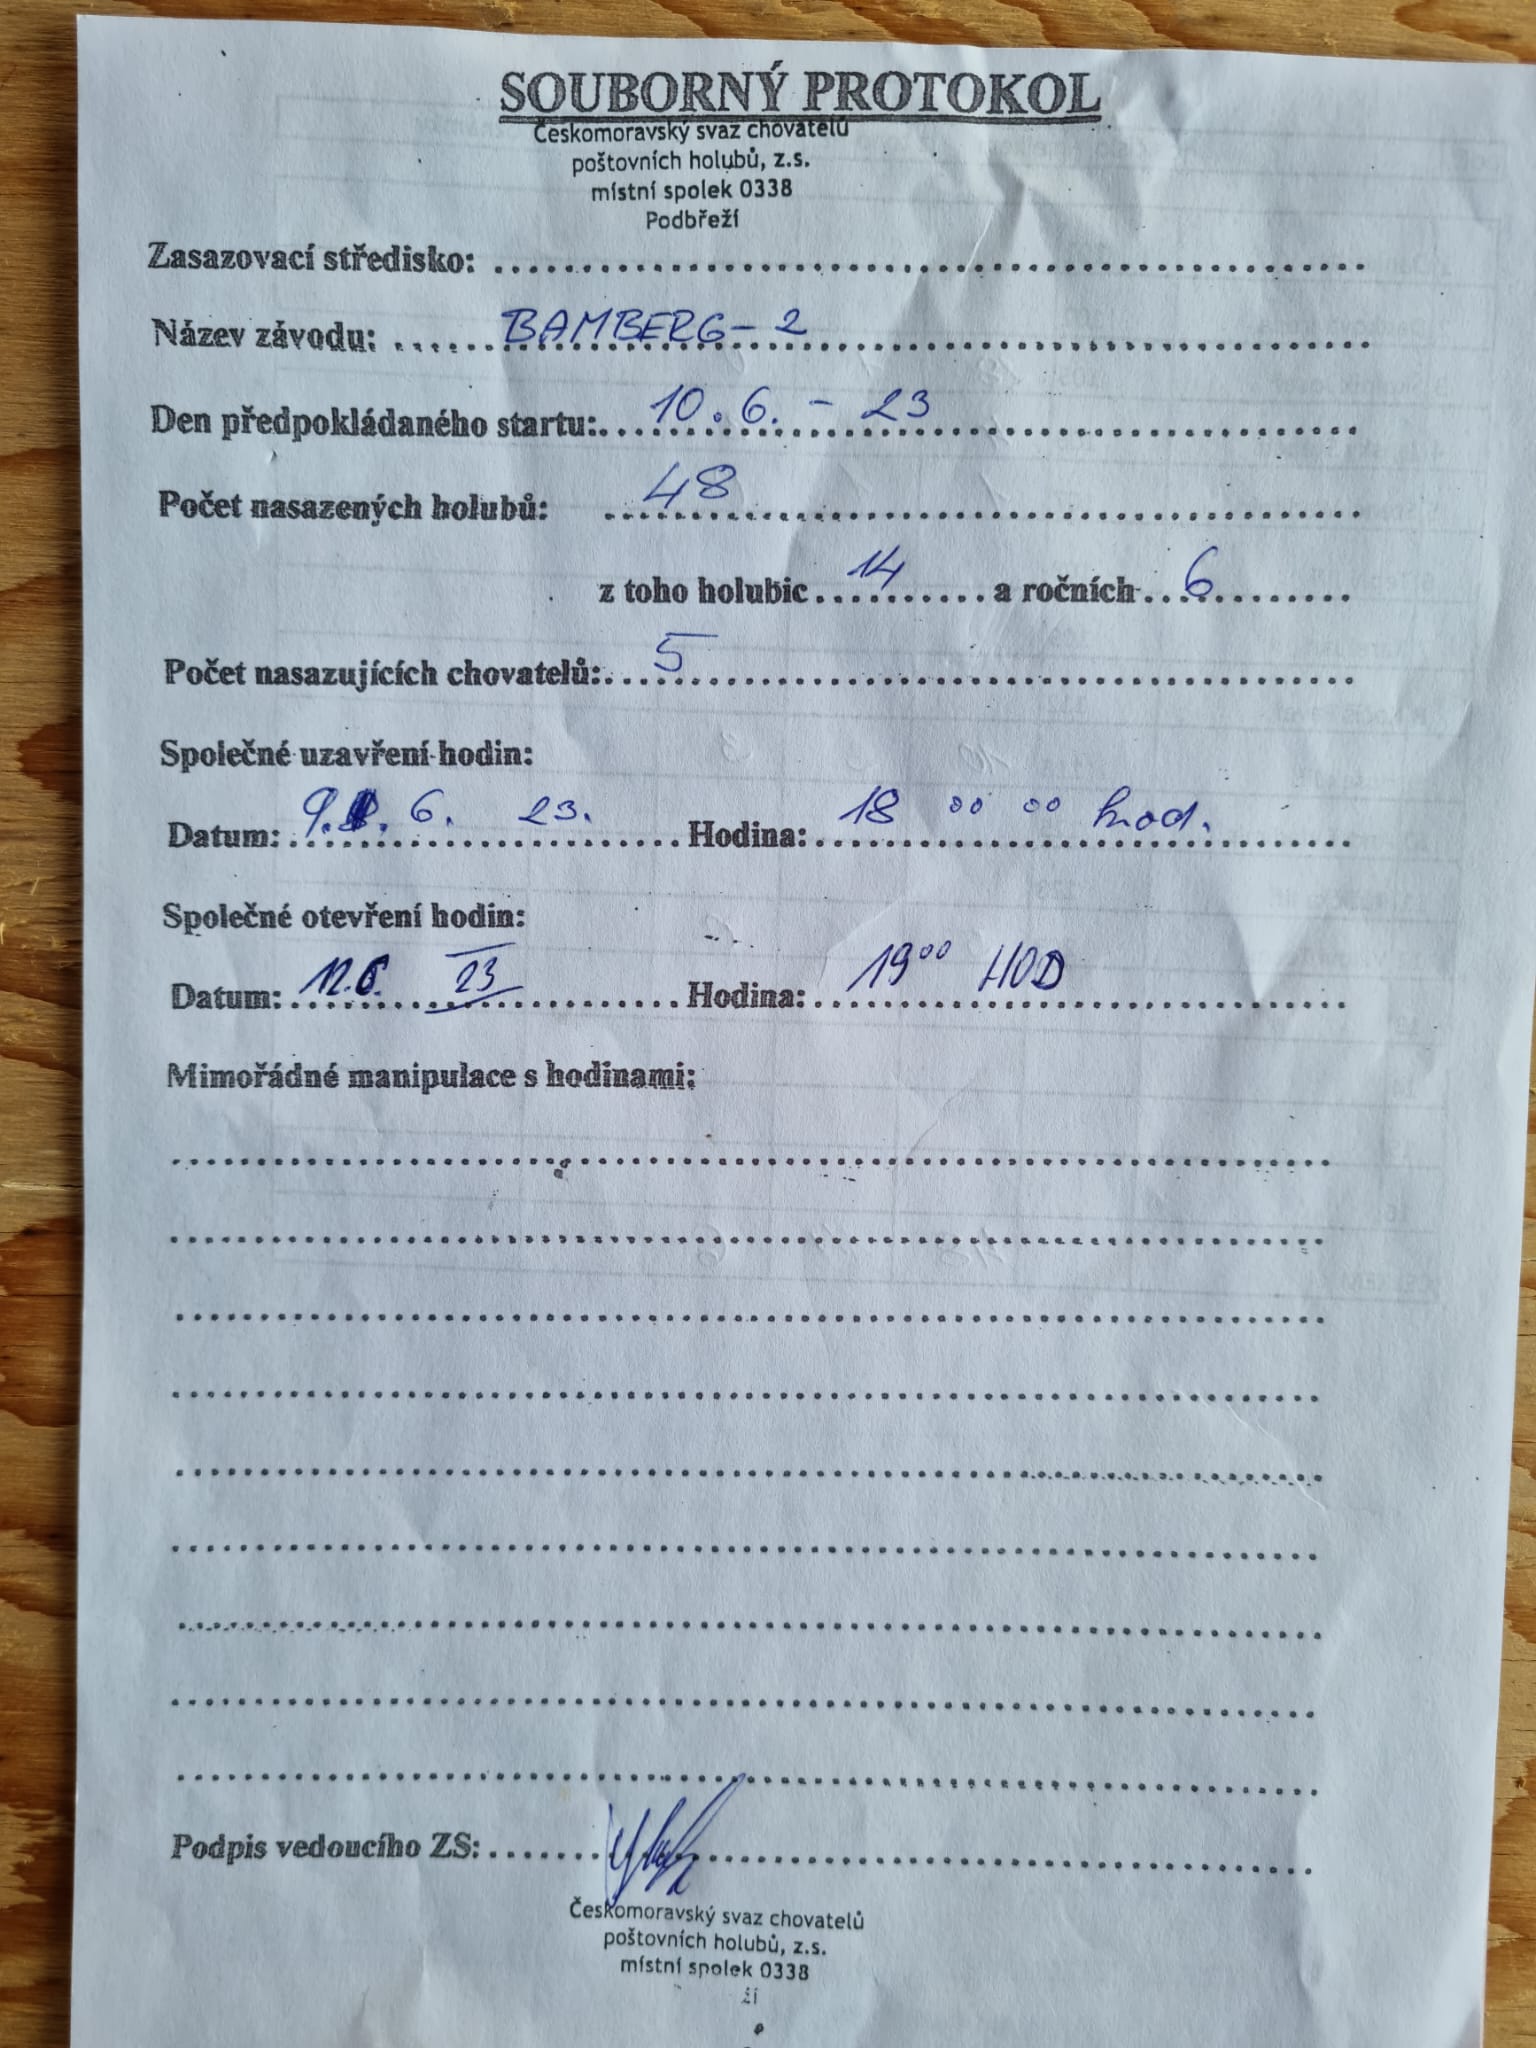 SOUBORNÝ PROTOKOL
Českomoravský svaz chovatelů
poštovních holubů, z.s.
místní spolek 0338
Podbřeží
Zasazovací středisko:
Název závodu: BAMBERG - 2
Den předpokládaného startu: 10. 6. - 23
Počet nasazených holubů: 48
z toho holubic 14 a ročních 6
Počet nasazujících chovatelů: 5
Společné uzavření hodin:
Datum: 9. 6. 23. Hodina: 18 00 00 hod.
Společné otevření hodin:
Datum: 12.6. 23 Hodina: 19 00 HOD
Mimořádné manipulace s hodinami:
Podpis vedoucího ZS:
Českomoravský svaz chovatelů
poštovních holubů, z.s.
místní spolek 0338
ží